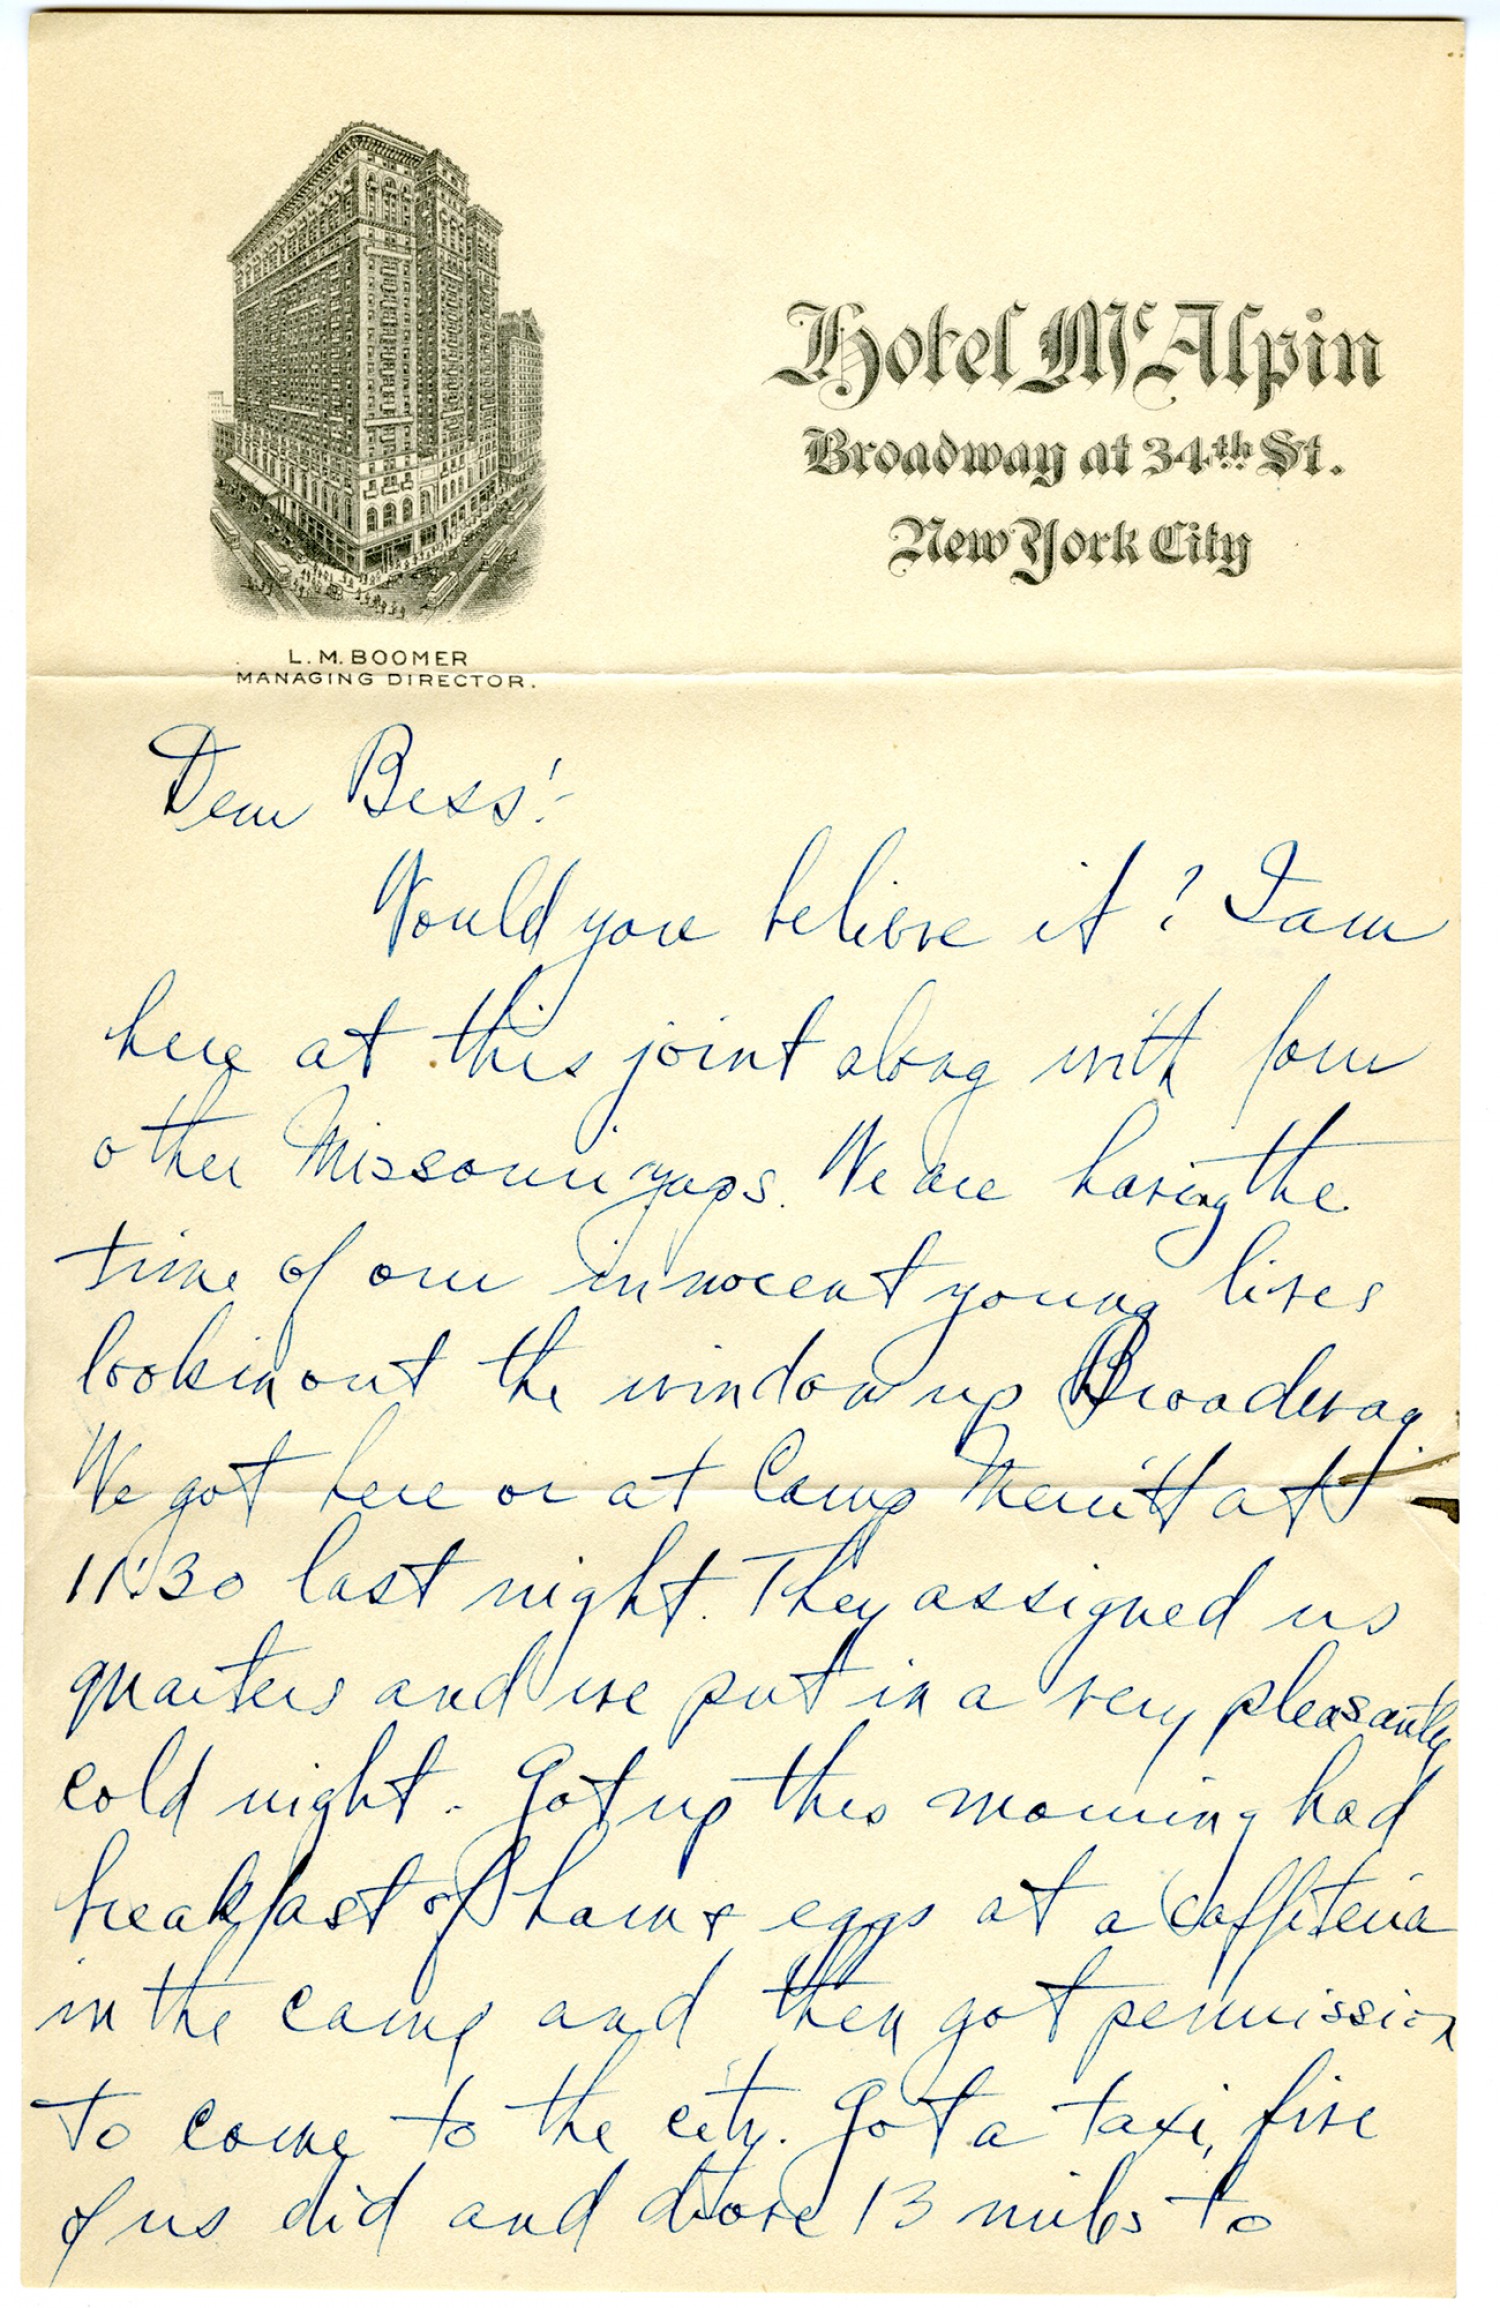 Hotel McAlpin
Broadway at 34th St.
New York City
L. M. BOOMER
MANAGING DIRECTOR.
Dear Bess:-
Would you believe it? I am
here at this joint along with four
other Missouri yaps. We are having the
time of our innocent young lives
lookin out the window up Broadway
We got here or at Camp Merritt at
11:30 last night. They assigned us
quarters and we put in a very pleasantly
cold night. Got up this morning had
breakfast of ham & eggs at a caffiteria
in the camp and then got permission
to come to the city. Got a taxi, five
of us did and drove 13 miles to